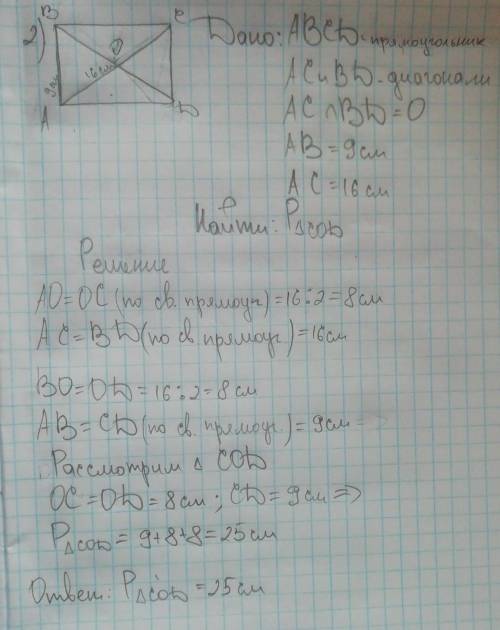 2)
B C
O
9см 16см
A D
Дано: ABCD - прямоугольник
AC и BD - диагонали
AC ∩ BD = O
AB = 9 см
AC = 16 см
Найти: P△COD
Решение
AO = OC (по св. прямоуг) = 16:2 = 8 см
AC = BD (по св. прямоуг.) = 16см
BO = OD = 16:2 = 8 см
AB = CD (по св. прямоуг.) = 9см
Рассмотрим △ COD
OC = OD = 8 см; CD = 9 см =>
P△COD = 9+8+8 = 25 см
Ответ: P△COD = 25 см